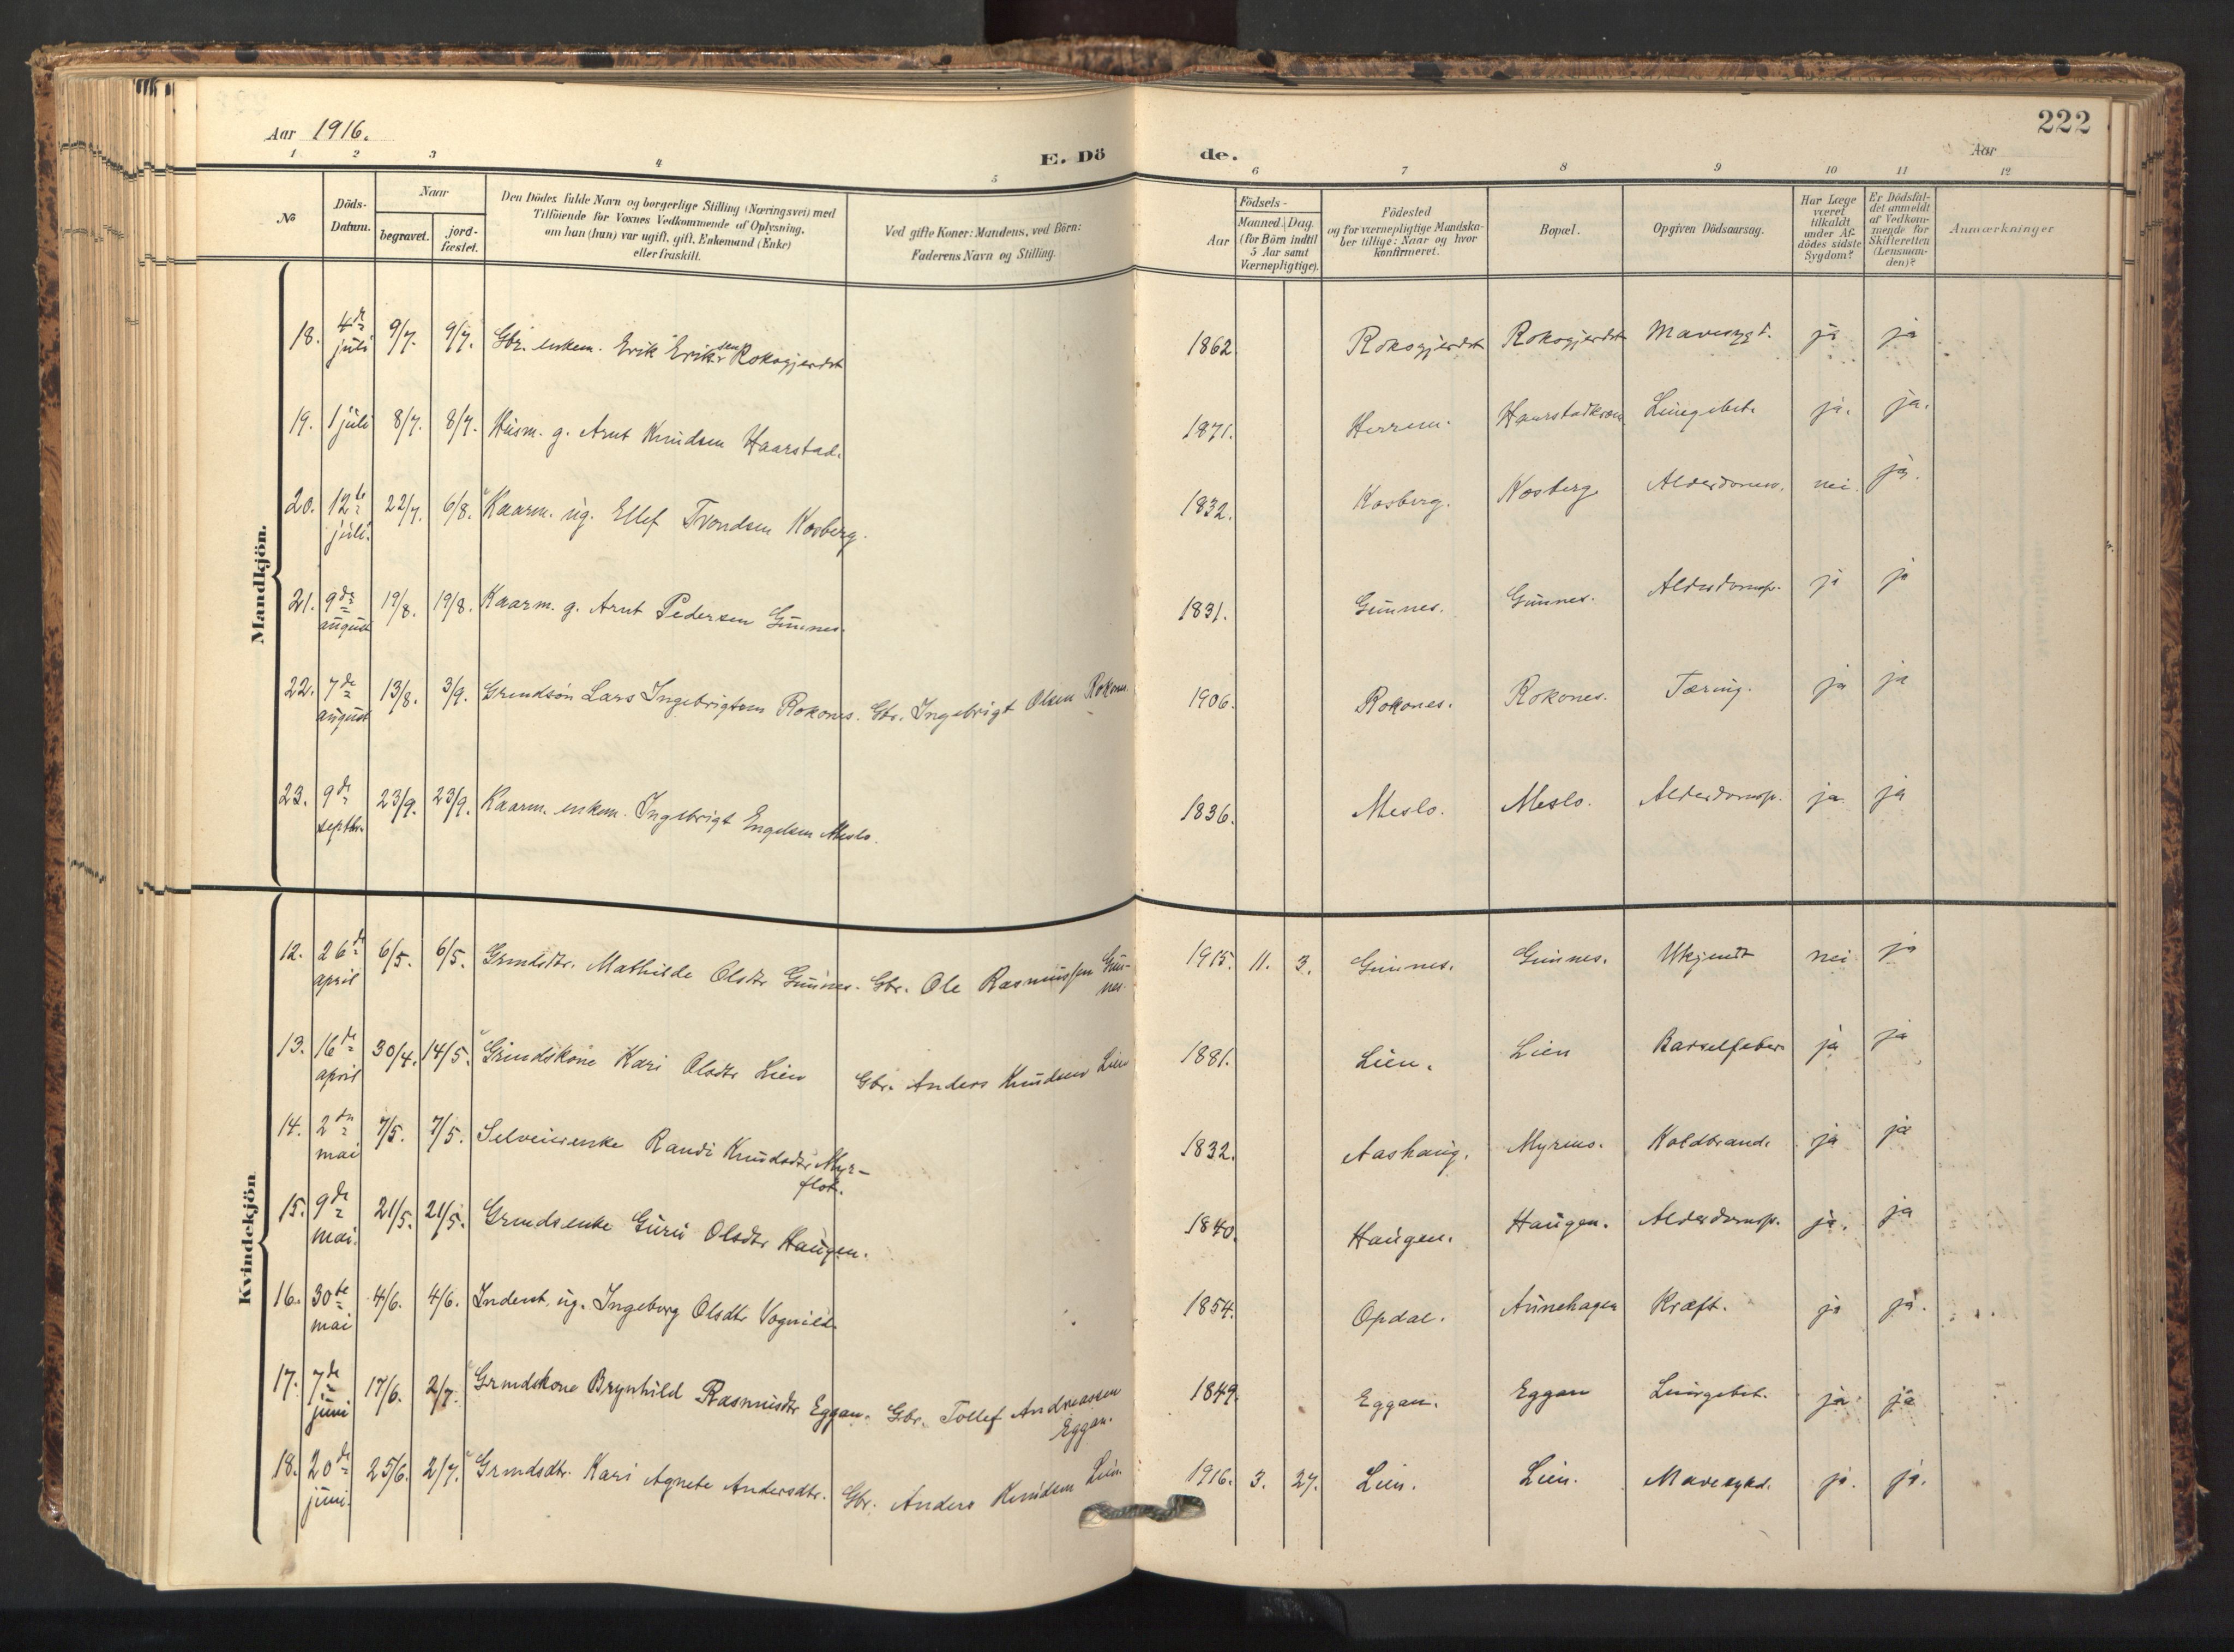 Aar 1916.
222
Aar
E. Dö de.
1 2 3 4 5 6 7 8 9 10 11 12
No
Döds-
Datum.
Naar
begravet.
jord-
fæstet.
Den Dödes fulde Navn og borgerlige Stilling (Næringsvei) med
Tilföiende for Voxnes Vedkommende af Oplysning,
om han (hun) var ugift, gift, Enkemand (Enke)
eller fraskilt.
Ved gifte Koner: Mandens, ved Börn:
Faderens Navn og Stilling.
Födsels-
Aar
Maaned. Dag.
(for Börn indtil
5 Aar samt
Værnepligtige).
Födested
og for værnepligtige Mandska-
ber tillige: Naar og hvor
konfirmeret.
Bopæl.
Opgiven Dödsaarsag.
Har Læge
været
tilkaldt
under Af-
dödes sidste
Sygdom?
Er Dödsfal-
det anmeldt
af Vedkom-
mende for
Skifteretten
(Lensman-
den)?
Anmærkninger
Mandkjön.
18. 4de juli 9/7. 9/7. Gbr. enkem. Erik Eriksen Roksgjerdet 1862. Roksgjerdet Roksgjerdet Mavesygd. ja ja
19. 1 juli 8/7. 8/7. Husm. g. Arnt Knudsen Haarstad. 1871. Herrem. Lungebet. ja. ja.
20. 12te juli. 22/7. 6/8. Kaarm. ug. Ellef Trondsen Kosberg. 1832. Kosberg. Kosberg nei. ja.
21. 9de august 19/8. 19/8. Kaarm. g. Arnt Pedersen Gunnes. 1831. Gunnes. Gunnes. Alderdomssp. ja ja
22. 7de august 13/8. 3/9. Grmdsøn Lars Ingebrigtsen Rokones. Gbr. Ingebrigt Olsen Rokones 1906. Rokones. Rokones. Tæring. ja ja
23. 9de septbr. 23/9. 23/9. Kaarm. enkem. Ingebrigt Engelsen Meslo. 1836. Meslo. Meslo. Alderdomssp. ja ja
Kvindekjön
12. 26de april 6/5. 6/5. Grmdsdtr. Mathilde Olsdtr Gunnes. Gbr. Ole Rasmussen Gunnes. 1915. 11. 3. Gunnes. Gunnes. Ukjendt nei ja
13. 16de april 30/4. 14/5. Grmdskone Kari Olsdtr Lien Gbr. Anders Knudsen Lien 1881. Lien. Lien Barselfeber ja ja
14. 2den mai 7/5. 7/5. Selveierenke Randi Knudsdtr Myr-
flot. 1832. Aashaug. Koldbrand. ja ja
15. 9de mai. 21/5. 21/5. Grmdsenke Guru Olsdtr Haugen. 1840. Haugen. Haugen. Alderdomssp. ja. ja
16. 30te mai 4/6. 4/6. Inderst, ug. Ingeborg Olsdtr Vognild. 1854. Opdal. Aunehagen Kræft. ja ja.
17. 7de juni 17/6. 2/7. Grmdskone Brynhild Rasmusdtr Eggan. Gbr. Tollef Andreassen
Eggan. 1849. Eggan. Eggan Lungebet. ja ja
18. 20de juni. 25/6. 2/7. Grmdsdtr. Kari Agnete Andersdtr. Gbr. Anders Knudsen Lien. 1916. 3. 27. Lien. Lien. Mavesygd. ja. ja.